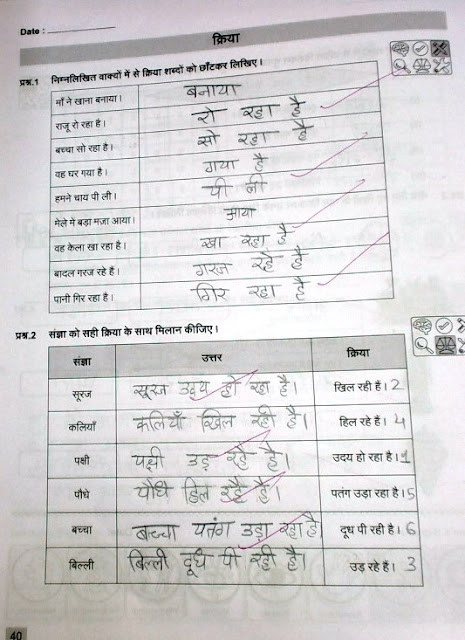 Date :
क्रिया
प्रश्न.1 निम्नलिखित वाक्यों में से क्रिया शब्दों को छाँटकर लिखिए।
माँ ने खाना बनाया। बनाया
राजू रो रहा है। रो रहा है
बच्चा सो रहा है। सो रहा है
वह घर गया है। गया है
हमने चाय पी ली। पी ली
मेले में बड़ा मजा आया। आया
वह केला खा रहा है। खा रहा है
बादल गरज रहे हैं। गरज रहे है
पानी गिर रहा है। गिर रहा है
प्रश्न.2 संज्ञा को सही क्रिया के साथ मिलान कीजिए।
संज्ञा उत्तर क्रिया
सूरज सूरज उदय हो रहा है। खिल रही हैं। 2
कलियाँ कलियाँ खिल रही है। हिल रहे हैं। 4
पक्षी पक्षी उड़ रहे है। उदय हो रहा है। 1
पौधे पौधे हिल रहे है। पतंग उड़ा रहा है। 5
बच्चा बच्चा पतंग उड़ा रहा है दूध पी रही है। 6
बिल्ली बिल्ली दूध पी रही है। उड़ रहे हैं। 3
40